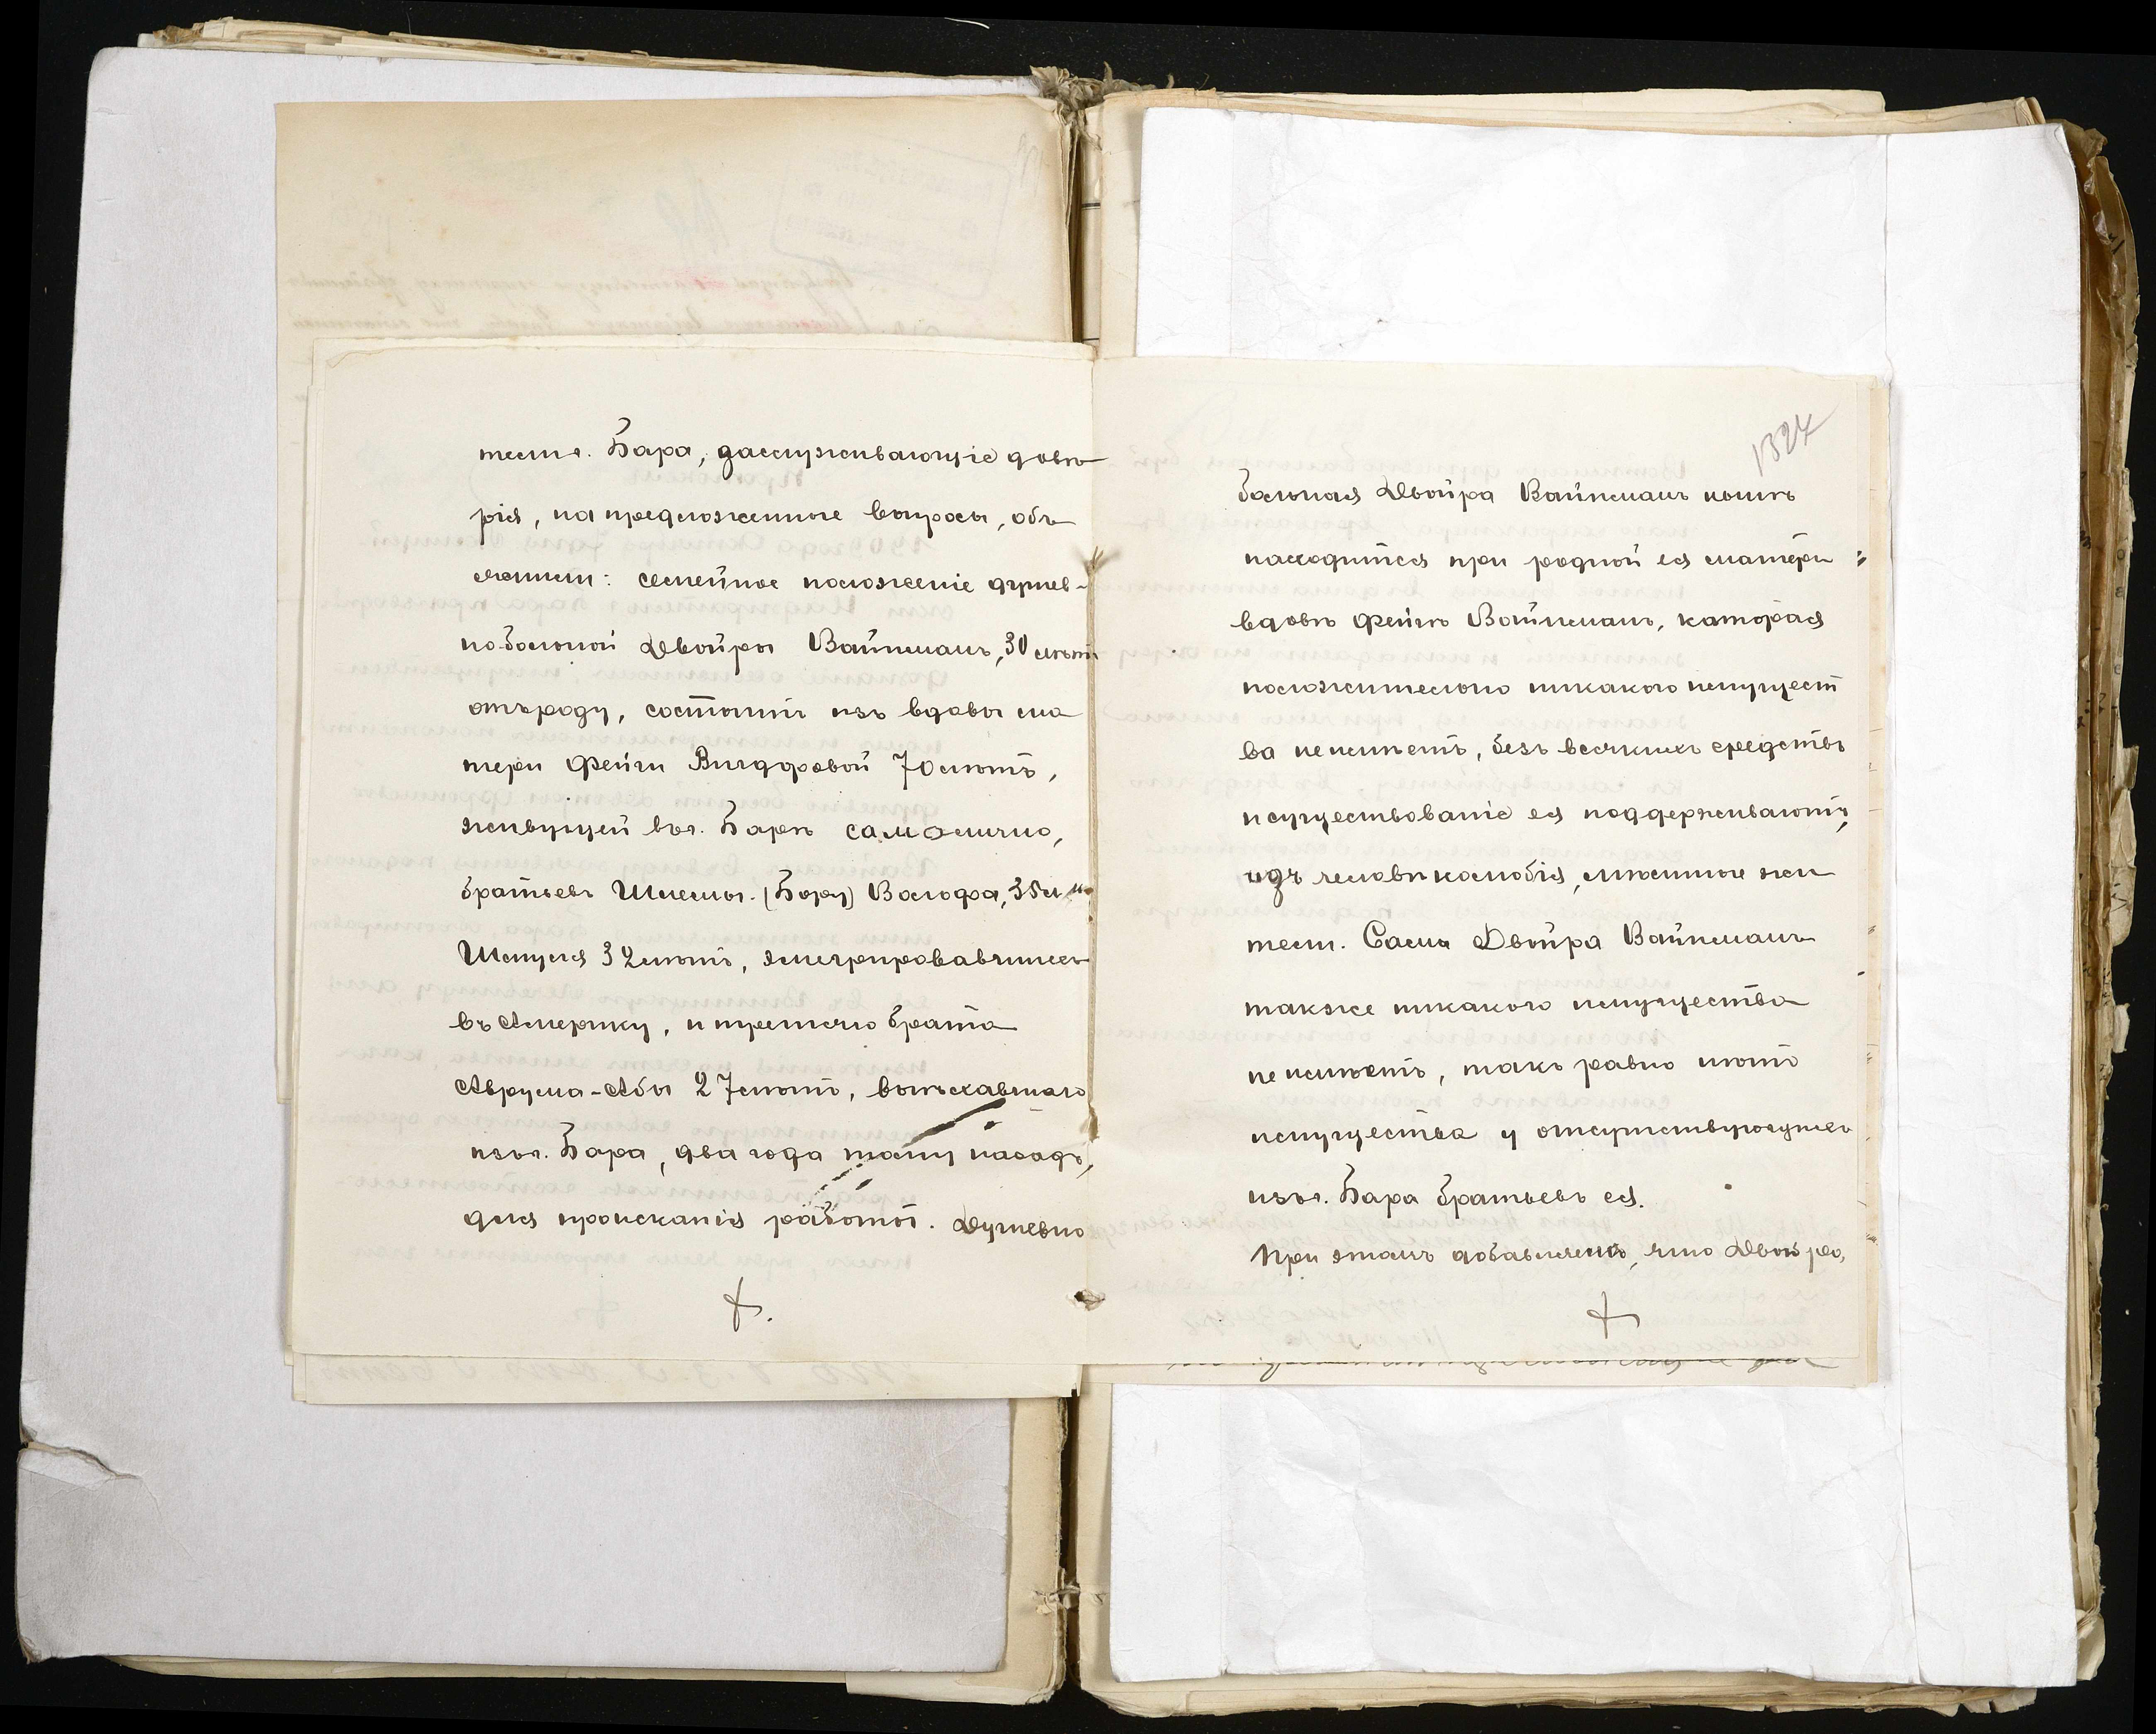 тели г. Бара, заслуживающіе довѣ
рія, на предложенные вопросы, объ
яснили: семейное положеніе душев-
но-больной Двойры Вайнманъ, 30 лѣтъ
отъ роду, состоитъ изъ вдовы ма
тери Фейги Вигдоровой 70 лѣтъ,
живущей въ г. Барѣ самолично,
братьевъ Шлемы. (Бору) Волофа, 35 л
Шмуля 32 лѣтъ, эмигрировавшихъ
въ Америку, и третьяго брата
Аврума-Абы 27 лѣтъ, выѣхавшаго
изъ г. Бара, два года тому назадъ,
для происканія работы. Душевно
1324
больная Двойра Вайнманъ нынѣ
находится при родной ея матери
вдовѣ Фейгѣ Вайнманъ, которая
положительно никакого имущест
ва не имѣетъ, безъ всякихъ средствъ
и существованіе ея поддерживаютъ,
изъ человѣколюбія, мѣстные жи
тели. Сама Двойра Вайнманъ
также никакого имущества
не имѣетъ, такъ равно нѣтъ
имущества у отсутствующихъ
изъ г. Бара братьевъ ея.
При этомъ добавляемъ, что Двойра,